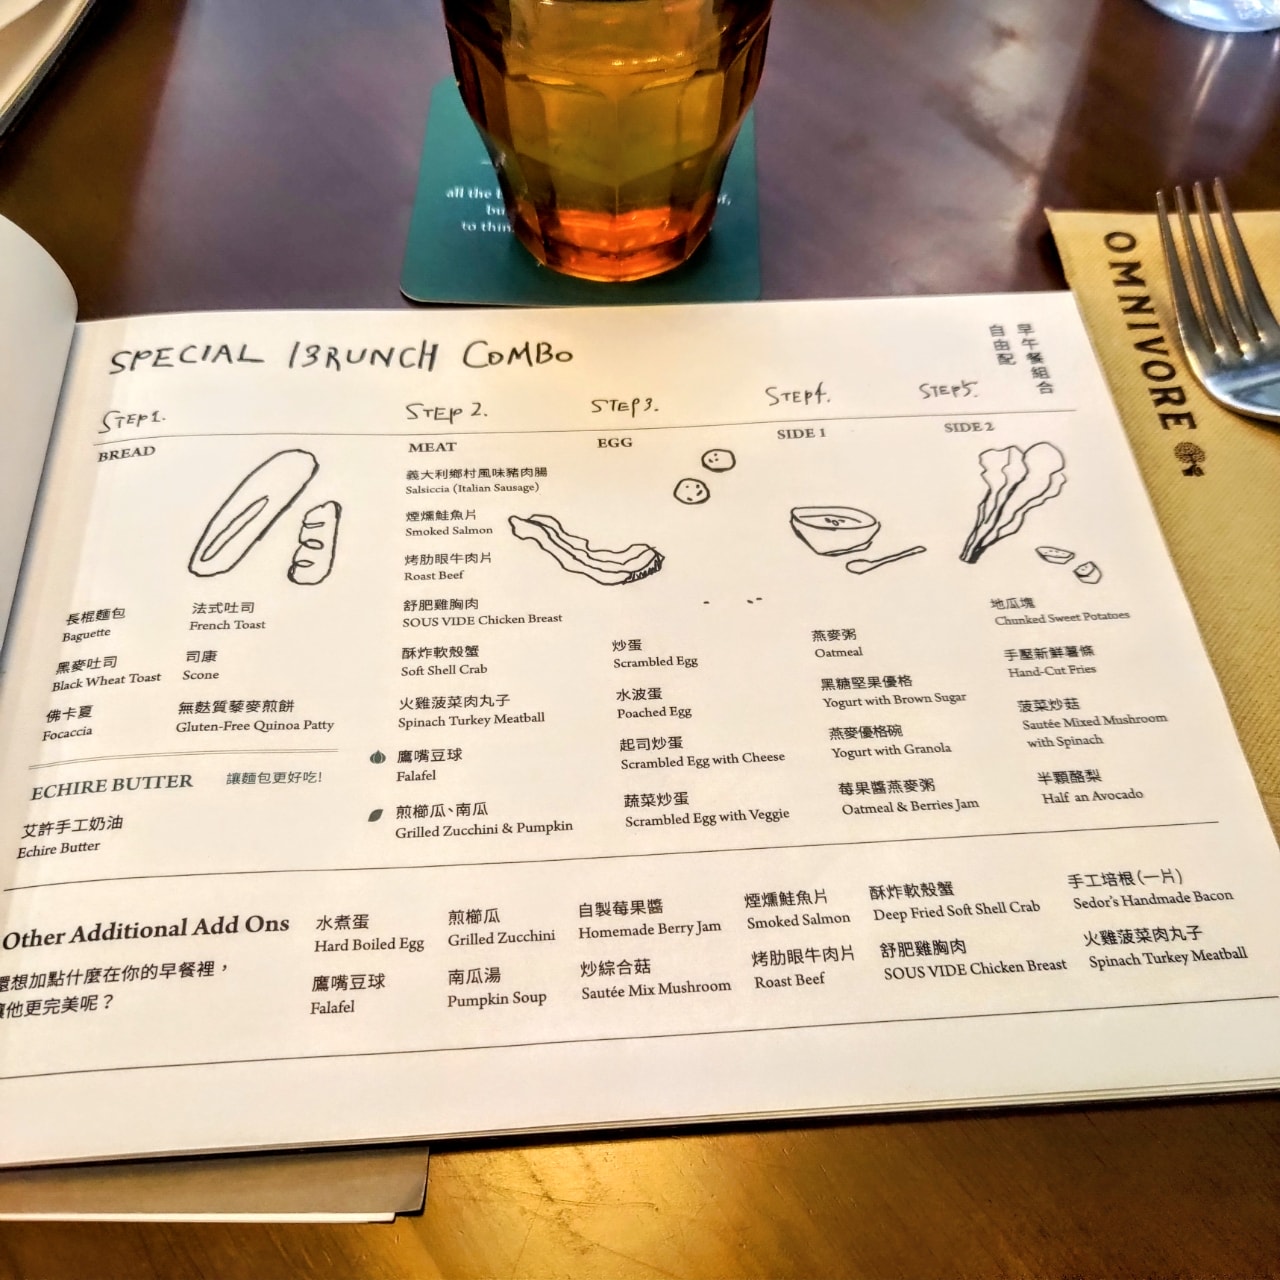 all the
bu
to thin
OMNIVORE
SPECIAL BRUNCH COMBO
早午餐組合
自由配
STEP1.
BREAD
長棍麵包
Baguette
黑麥吐司
Black Wheat Toast
佛卡夏
Focaccia
法式吐司
French Toast
司康
Scone
無麩質藜麥煎餅
Gluten-Free Quinoa Patty
ECHIRE BUTTER
讓麵包更好吃!
艾許手工奶油
Echire Butter
STEP 2.
MEAT
義大利鄉村風味豬肉腸
Salsiccia (Italian Sausage)
煙燻鮭魚片
Smoked Salmon
烤肋眼牛肉片
Roast Beef
舒肥雞胸肉
SOUS VIDE Chicken Breast
酥炸軟殼蟹
Soft Shell Crab
火雞菠菜肉丸子
Spinach Turkey Meatball
鷹嘴豆球
Falafel
煎櫛瓜、南瓜
Grilled Zucchini & Pumpkin
STEP3.
EGG
炒蛋
Scrambled Egg
水波蛋
Poached Egg
起司炒蛋
Scrambled Egg with Cheese
蔬菜炒蛋
Scrambled Egg with Veggie
STEP4.
SIDE 1
燕麥粥
Oatmeal
黑糖堅果優格
Yogurt with Brown Sugar
燕麥優格碗
Yogurt with Granola
莓果醬燕麥粥
Oatmeal & Berries Jam
STEP5.
SIDE 2
地瓜塊
Chunked Sweet Potatoes
手壓新鮮薯條
Hand-Cut Fries
菠菜炒菇
Sautée Mixed Mushroom
with Spinach
半顆酪梨
Half an Avocado
Other Additional Add Ons
還想加點什麼在你的早餐裡，
讓他更完美呢？
水煮蛋
Hard Boiled Egg
鷹嘴豆球
Falafel
煎櫛瓜
Grilled Zucchini
南瓜湯
Pumpkin Soup
自製莓果醬
Homemade Berry Jam
炒綜合菇
Sautée Mix Mushroom
煙燻鮭魚片
Smoked Salmon
烤肋眼牛肉片
Roast Beef
酥炸軟殼蟹
Deep Fried Soft Shell Crab
舒肥雞胸肉
SOUS VIDE Chicken Breast
手工培根(一片)
Sedor's Handmade Bacon
火雞菠菜肉丸子
Spinach Turkey Meatball